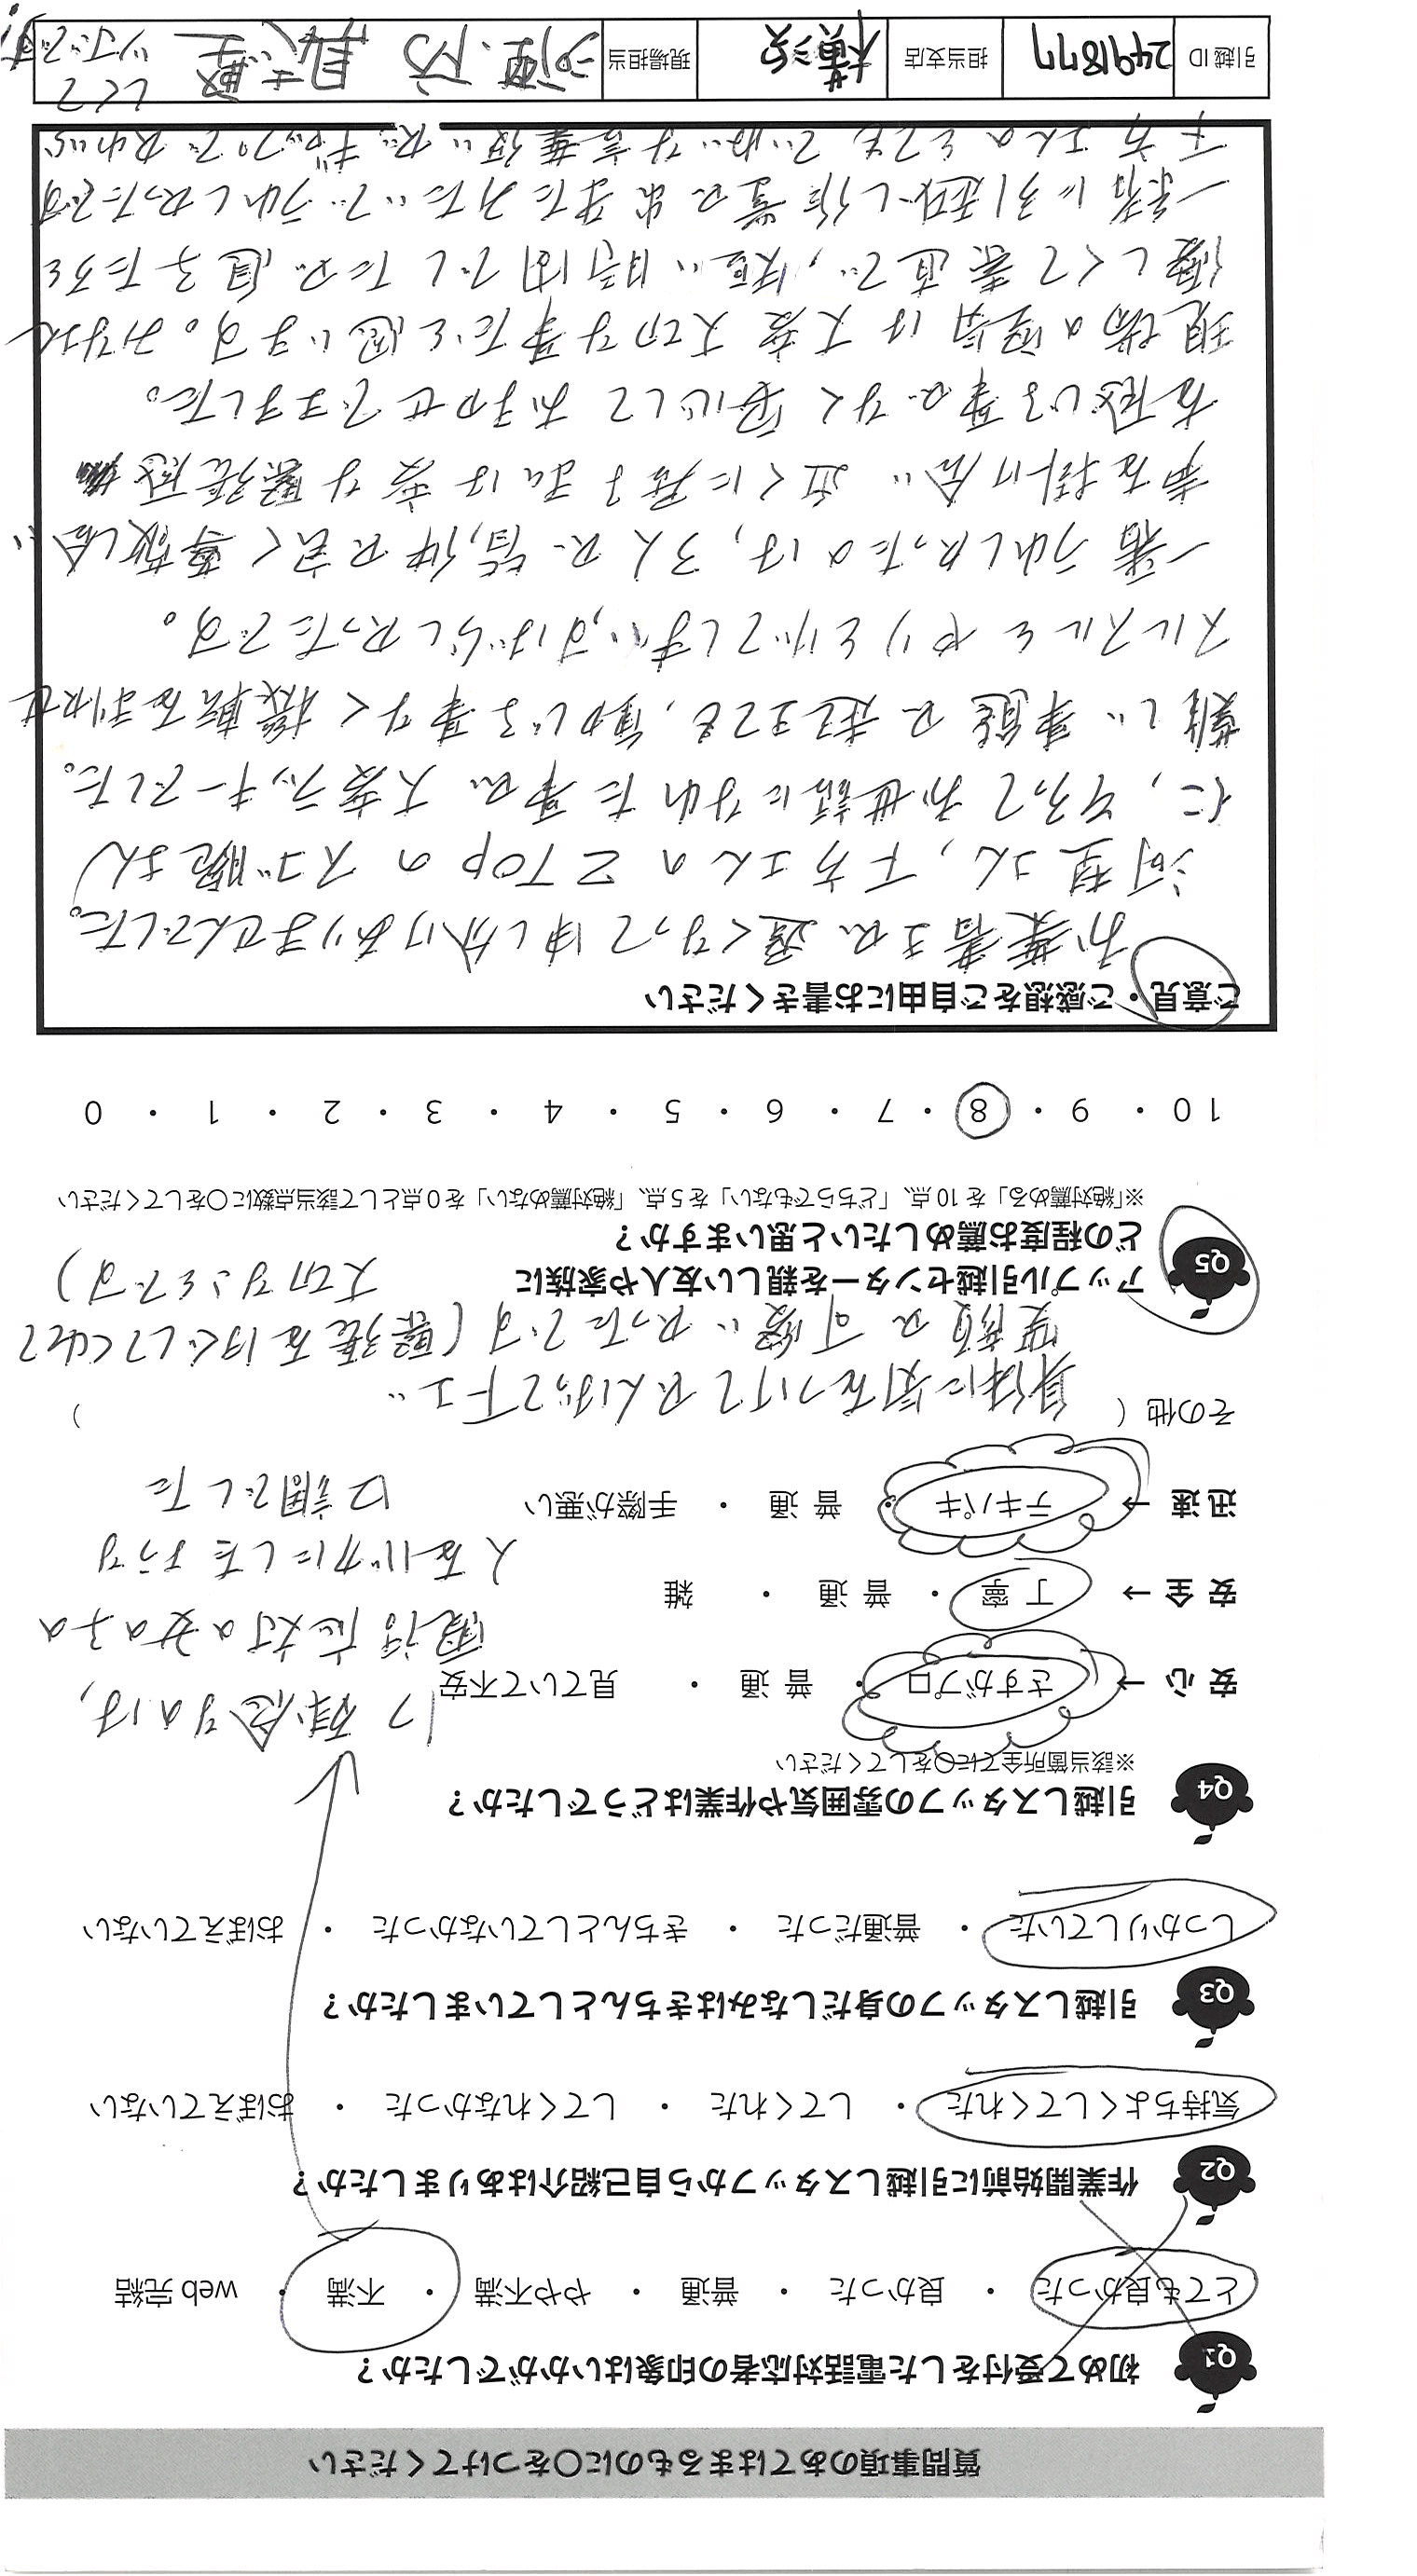 質問事項のあてはまるものに〇をつけてください
Q1
初めて受付をした電話対応者の印象はいかがでしたか？
とても良かった ・ 良かった ・ 普通 ・ やや不満 ・ 不満 ・ web 完結
Q2
作業開始前に引越しスタッフから自己紹介はありましたか？
気持ちよくしてくれた ・ してくれた ・ してくれなかった ・ おぼえていない
Q3
引越しスタッフの身だしなみはきちんとしていましたか？
しっかりしていた ・ 普通だった ・ きちんとしていなかった ・ おぼえていない
Q4
引越しスタッフの雰囲気や作業はどうでしたか？
※該当箇所全てに〇をしてください
安 心 → さすがプロ ・ 普 通 ・ 見ていて不安
安 全 → 丁 寧 ・ 普 通 ・ 雑
迅 速 → テキパキ ・ 普 通 ・ 手際が悪い
残念なのは、
電話応対の女の子の
人をバカにしたような
口調でした
その他（ ）
身体に気をつけてがんばって下さい
笑顔が可愛いかったです(緊張をほぐしてくれて
大切なことです)
Q5
アップル引越センターを親しい友人や家族に
どの程度お薦めしたいと思いますか？
※「絶対薦める」を 10 点、「どちらでもない」を 5 点、「絶対薦めない」を 0 点として該当点数に〇をしてください
10 ・ 9 ・ 8 ・ 7 ・ 6 ・ 5 ・ 4 ・ 3 ・ 2 ・ 1 ・ 0
ご意見・ご感想をご自由にお書きください
お葉書きが遅くなって申し分けありませんでした。
さん、下方さんの2TOPのスゴ腕さん
に、そろってお世話になれた事が大変ラッキーでした。
難しい事態が起きても、動じる事なく機転を利かせ
スルスルとやりとげてしまい、すばらしかったです。
一番うれしかったのは、3人が皆、仲が良く尊敬し合い
声を掛け合い 近くに居る私は変な緊張感
を感じる事がなく安心しておまかせできました。
現場の空気は大変大切な事だと思います。お
優しくて素直で、短い時間でしたが息子たちと
一緒に引越し作業が出来たみたいでうれしかったです
下方さんのとてもていねいな言葉使いが、ギャップで
して
ツボです
引越 ID 2491877 担当支店 横浜 現場担当